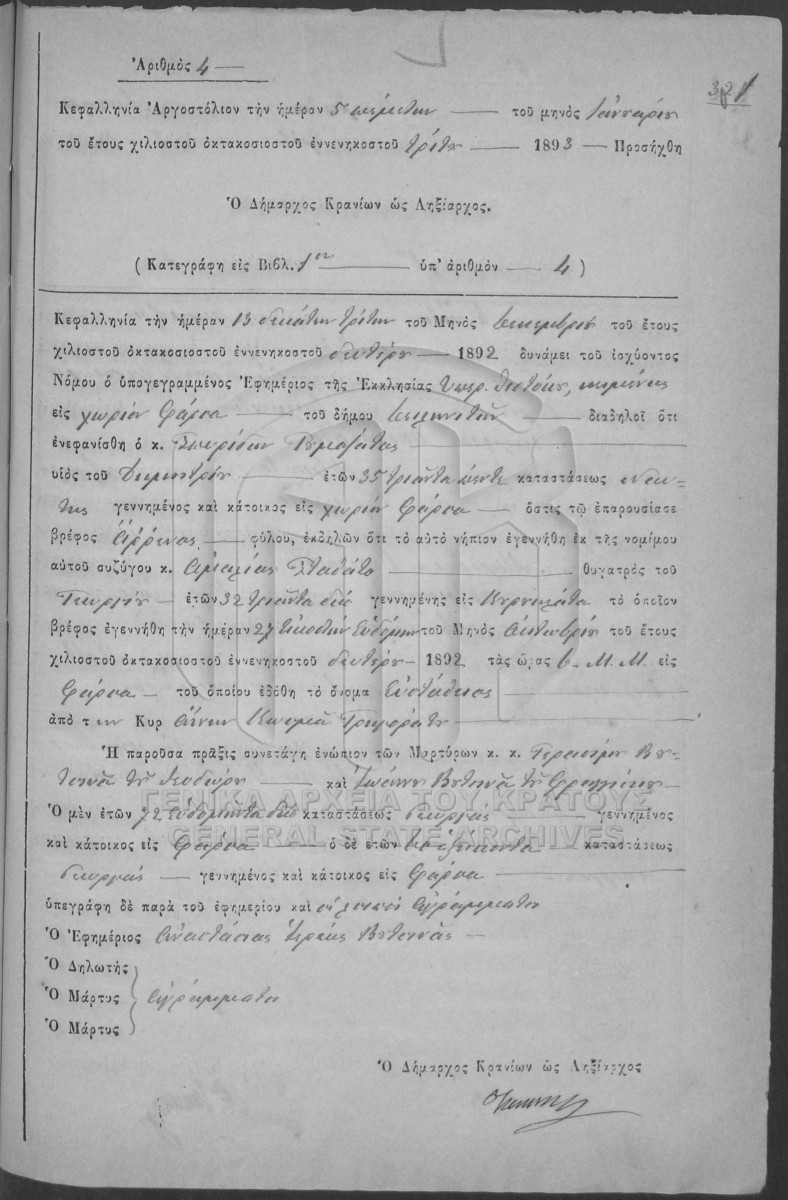 321
Ἀριθμὸς 4
Κεφαλληνία Ἀργοστόλιον τὴν ἡμέραν 5 πέμπτην τοῦ μηνὸς Ἰανναρίου
τοῦ ἔτους χιλιοστοῦ ὀκτακοσιοστοῦ ἐννενηκοστοῦ τρίτου 1893 — Προσήχθη
Ὁ Δήμαρχος Κρανίων ὡς Ληξίαρχος.
( Κατεγράφη εἰς Βιβλ. 1ον ὑπ' ἀριθμὸν 4 )
Κεφαλληνία τὴν ἡμέραν 13 δεκάτην τρίτην τοῦ Μηνὸς Δεκεμβρίου τοῦ ἔτους
χιλιοστοῦ ὀκτακοσιοστοῦ ἐννενηκοστοῦ δευτέρου 1892 δυνάμει τοῦ ἰσχύοντος
Νόμου ὁ ὑπογεγραμμένος Ἐφημέριος τῆς Ἐκκλησίας Ὑπερ. Θεοτόκου, κειμένης
εἰς χωρίον Φάρσα τοῦ δήμου διαδηλοῖ ὅτι
ἐνεφανίσθη ὁ κ. Σπυρίδων
υἱὸς τοῦ Δημητρίου ἐτῶν 35 τριάντα πέντε καταστάσεως ναύ-
της γεννημένος καὶ κάτοικος εἰς χωρίον Φάρσα ὅστις τῷ ἐπαρουσίασε
βρέφος ἄρρενος φύλου, ἐκδηλῶν ὅτι τὸ αὐτὸ νήπιον ἐγεννήθη ἐκ τῆς νομίμου
αὐτοῦ συζύγου κ. Ἀμαλίας Σταθάτο θυγατρὸς τοῦ
Γεωργίου ἐτῶν 32 τριάντα δύο γεννημένης εἰς Κουρουκλάτα τὸ ὁποῖον
βρέφος ἐγεννήθη τὴν ἡμέραν 27 εἰκοστὴν ἑβδόμην τοῦ Μηνὸς Ὀκτωβρίου τοῦ ἔτους
χιλιοστοῦ ὀκτακοσιοστοῦ ἐννενηκοστοῦ δευτέρου 1892 τὰς ὥρας 6 Μ. Μ. εἰς
Φάρσα τοῦ ὁποίου ἐδόθη τὸ ὄνομα Εὐστάθειος
ἀπὸ τὴν Κυρ Ἄνναν Γρηγοράτου
Ἡ παροῦσα πρᾶξις συνετάγη ἐνώπιον τῶν Μαρτύρων κ. κ. Γερασίμου Βου-
τσινᾶ τοῦ Θεοδώρου καὶ Ἰωάννου Βουτσινᾶ τοῦ
Ὁ μὲν ἐτῶν 72 ἑβδομῆντα δύο καταστάσεως γεωργὸς γεννημένος
καὶ κάτοικος εἰς Φάρσα ὁ δὲ ἐτῶν 60 ἑξήκοντα καταστάσεως
γεωργὸς γεννημένος καὶ κάτοικος εἰς Φάρσα
ὑπεγράφη δὲ παρὰ τοῦ ἐφημερίου καὶ οἱ λοιποὶ ἀγράμματοι
Ὁ Ἐφημέριος Ἀναστάσιος Ἱερεὺς Βουτσινᾶς
Ὁ Δηλωτὴς
Ὁ Μάρτυς ἀγράμματοι
Ὁ Μάρτυς
Ὁ Δήμαρχος Κρανίων ὡς Ληξίαρχος
ΓΕΝΙΚΑ ΑΡΧΕΙΑ ΤΟΥ ΚΡΑΤΟΥΣ
GENERAL STATE ARCHIVES